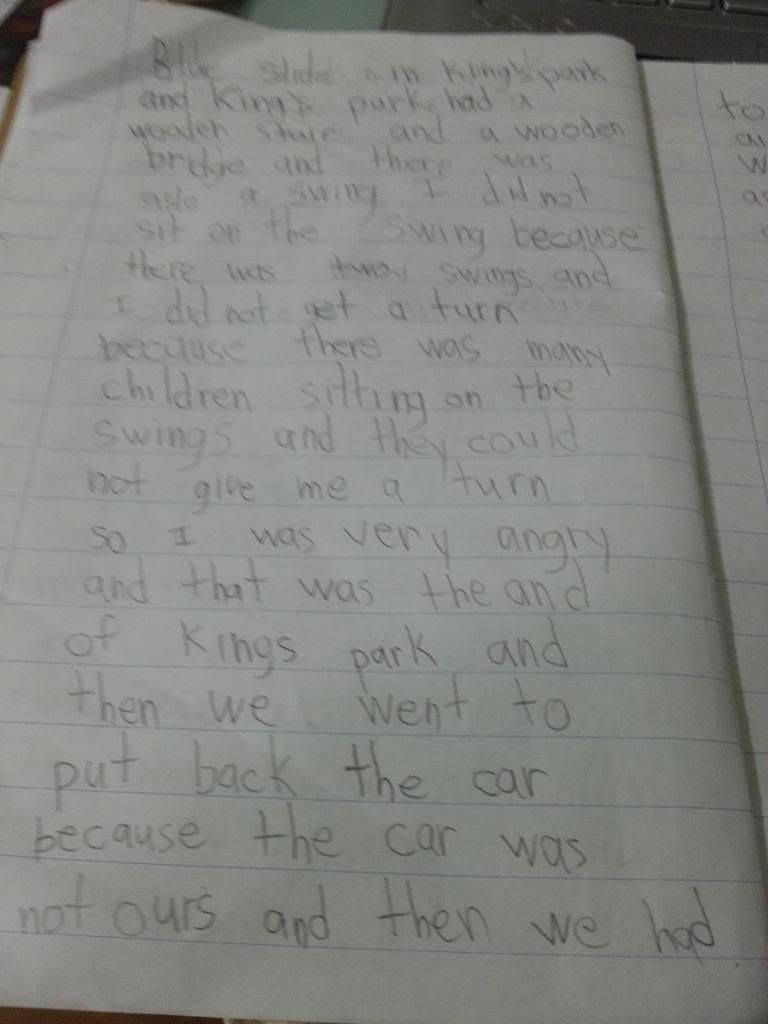 Blue slide in King's park
and King's park had a
wooden stair and a wooden
bridje and there was
aslo a swing. I did not
sit on the swing because
there was two swings and
I did not get a turn
because there was many
children sitting on the
swings and they could
not give me a turn
so I was very angry
and that was the and
of King's park and
then we went to
put back the car
because the car was
not ours and then we had
to